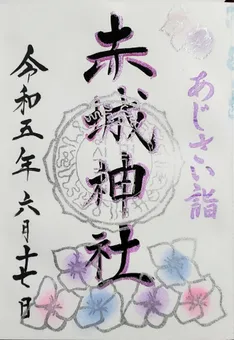 あじさい詣
赤城神社
令和五年 六月十七日